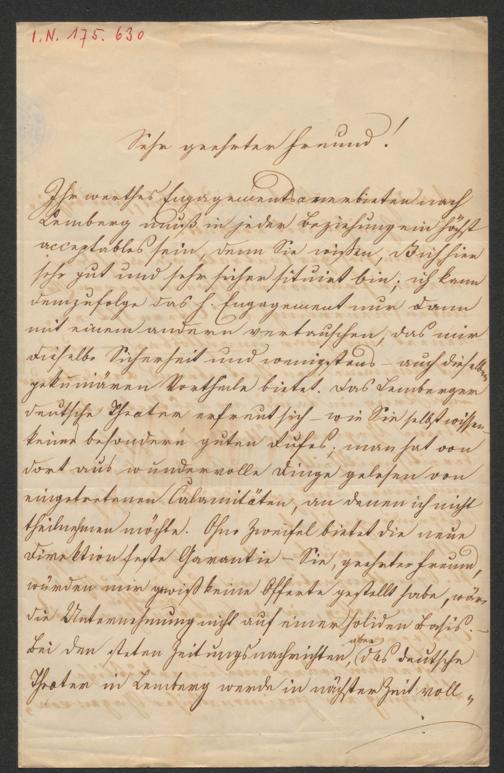 I.N. 175.630
Sehr geehrter Freund!
Ihr werthes Engagementsanerbieten nach
Lemberg muß in jeder Beziehung ein höchst
acceptables sein, denn Sie wißen, daß ich hier
sehr gut und sehr sicher situirt bin; ich kann
demzufolge das h. Engagement nur dann
mit einem andern vertauschen, das mir
dieselbe Sicherheit und wenigstens – auch dieselben
pekuniären Vortheile bietet. Das Lemberger
deutsche Theater erfreut sich – wie Sie selbst wissen
keines besonders guten Rufes; man hat von
dort aus wundervolle Dinge gelesen von
eingetretenen Calamitäten, an denen ich nicht
theilnehmen möchte. Ohne Zweifel bietet die neue
Direktion feste Garantie – Sie, geehrter Freund,
würden mir gewiß keine Offerte gestellt habe, wäre
die Unternehmung nicht auf einer soliden Basis. –
Bei den steten Zeitungsnachrichten aber, das deutsche
Theater in Lemberg werde in nächster Zeit voll„